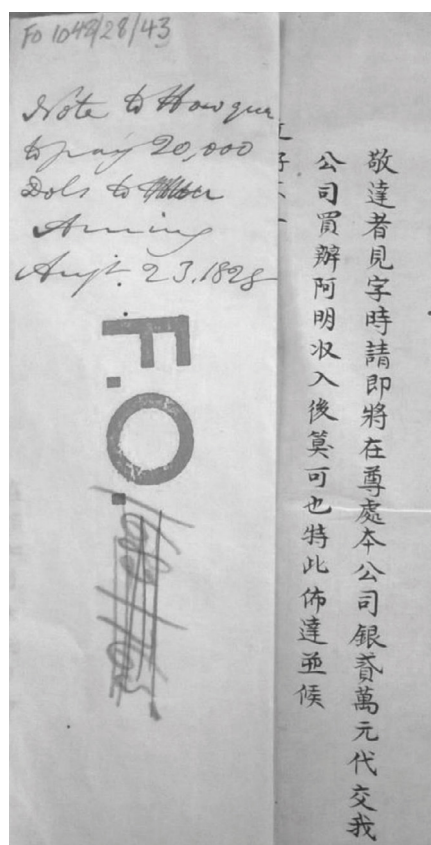 FO 1048/28/43
Note to Howqua
to pay 20,000
Dols to
Aming
Augt. 23. 1828
F.O.
敬達者見字時請即將在尊處夲公司銀貳萬元代交我
公司買辦阿明收入後筭可也特此佈達並候